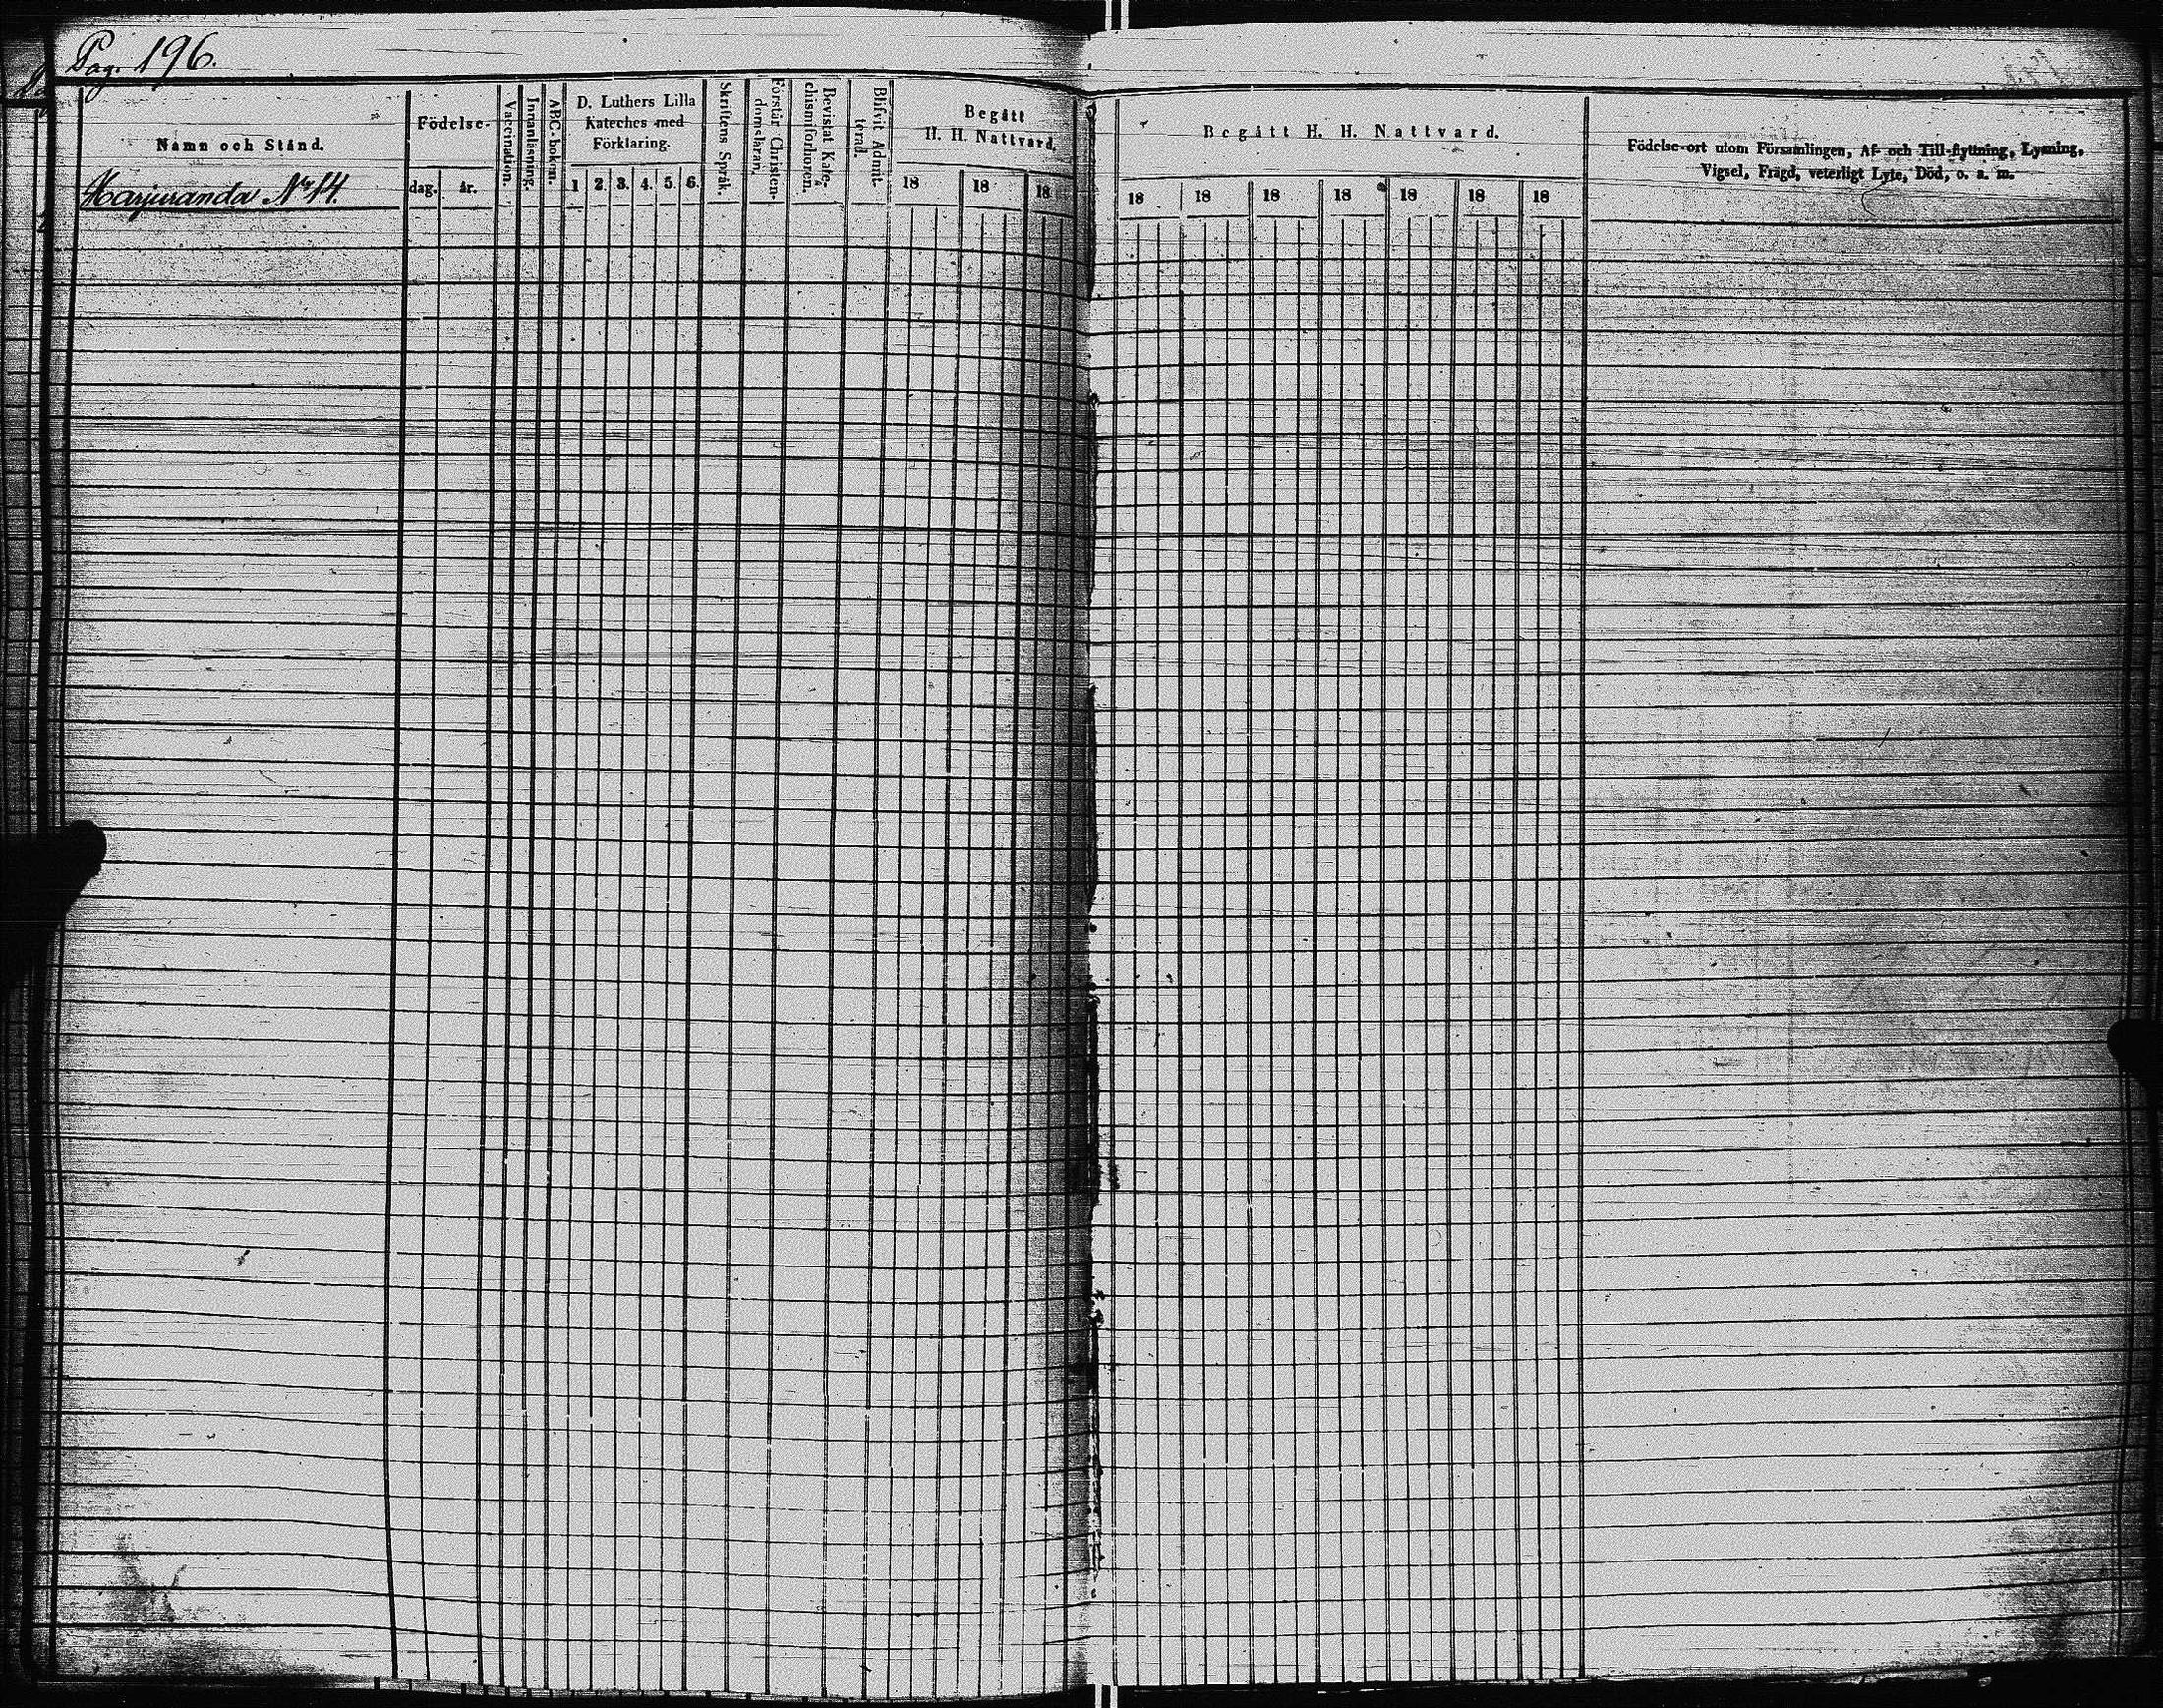 Pag. 196.
Namn och Stånd.
Harjuranda No 14.
Födelse-
dag.
år.
Vaccination.
Innanläsning.
ABC-boken.
D. Luthers Lilla
Kateches med
Förklaring.
1 2. 3. 4. 5. 6.
Skriftens Språk.
Förstår Christen-
domsläran.
Bevistat Kate-
chismiförhören.
Blifvit Admit-
terad.
Begått
H. H. Nattvard.
18 18 18
Begått H. H. Nattvard.
18 18 18 18 18 18 18
Födelse-ort utom Församlingen, Af- och Till-flyttning, Lysning,
Vigsel, Frägd, veterligt Lyte, Död, o. s. m.